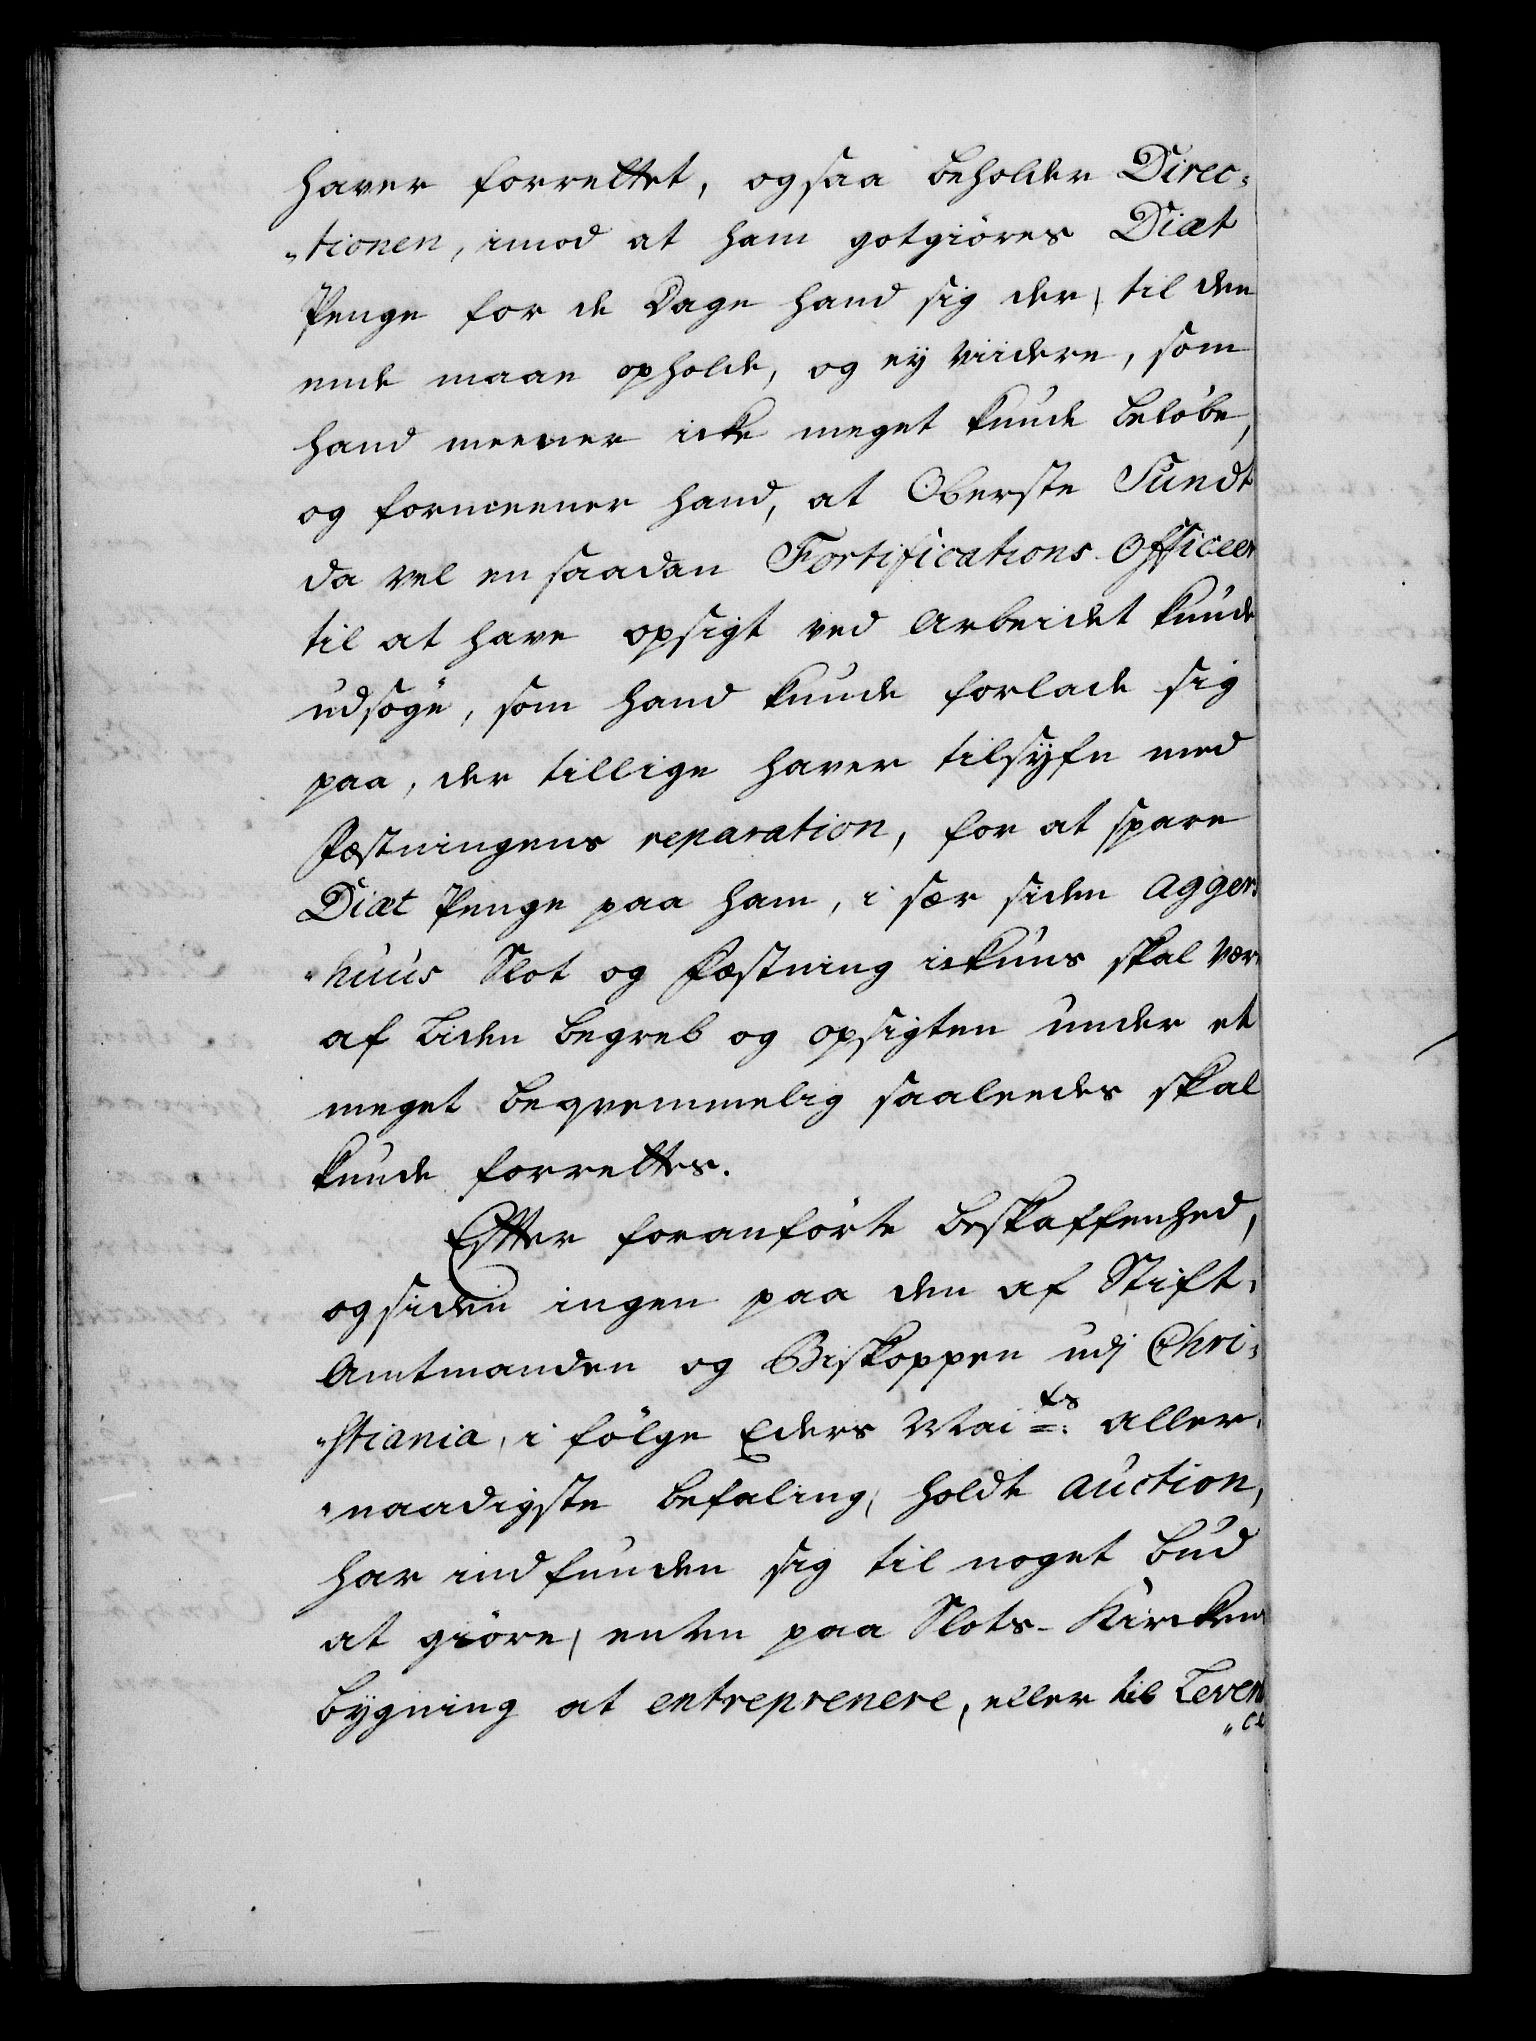 haver forrettet, ogsaa beholder Direc„
„tionen, imod at ham gotgiöres Diæt
Penge for de Dage hand sig der, til den
ende maae opholde, og ey viidere, som
hand meener icke meget kunde beløbe,
og formeener hand, at Oberste Sundt
da vel en saadan Fortifications Officeer
til at have opsigt ved Arbeidet kunde
udsöge, som hand kunde forlade sig
paa, der tillige haver tilsyn med
Fæstningens reparation, for at spare
Diæt Penge paa ham, i sær siden Agger„
„huus Slot og Fæstning ickuns skal være
af Liden begreb og opsigten under et
meget beqvemmelig saaleedes skal
kunde forrettes.
Efter foranförte beskaffenhed,
og siden ingen paa den af Stift„
Amtmanden og Biskoppen udj Chri„
„stiania, i fölge Eders Mai ts: aller„
„naadigste befaling, holdte Auction,
har indfunden sig til noget bud
at giöre, enten paa Slots-Kirckens
bygning at entreprenere, eller til Leveran
„ce